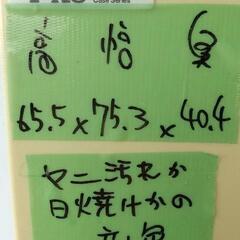 Case Series
高 幅 奥
65.5 x 75.3 x 40.4
ヤニ汚れか
日焼けかの